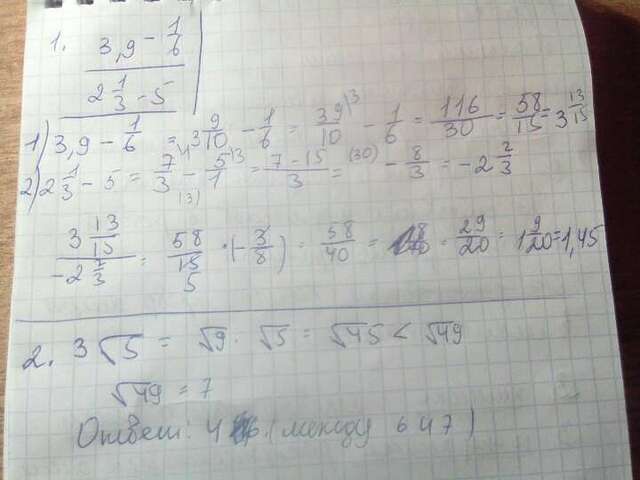 1. (3,9 - 1/6) / (2 1/3 - 5)
1) 3,9 - 1/6 = 3 9/10 - 1/6 = 39/10 - 1/6 = 116/30 = 58/15 = 3 13/15
2) 2 1/3 - 5 = 7/3 - 5/1 = (7-15)/3 = - 8/3 = -2 2/3
3 13/15 / -2 2/3 = 58/15 · (-3/8) = 58/40 = 29/20 = 1 9/20 = 1,45
2. 3√5 = √9 · √5 = √45 < √49
√49 = 7
Ответ: 4 (между 6 и 7)